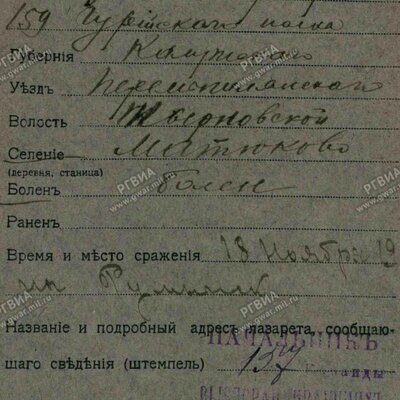 159 Гурійскаго полка
Губернія Калужской
Уѣздъ Перемышльской
Волость
Селеніе Матюково
(деревня, станица)
Боленъ болен
Раненъ
Время и мѣсто сраженія 18 Ноября 19
на
Названіе и подробный адресъ лазарета, сообщаю-
щаго свѣдѣнія (штемпель) 137
НАЧАЛЬНИКЪ
РГВИА
www.gwar.mil.ru